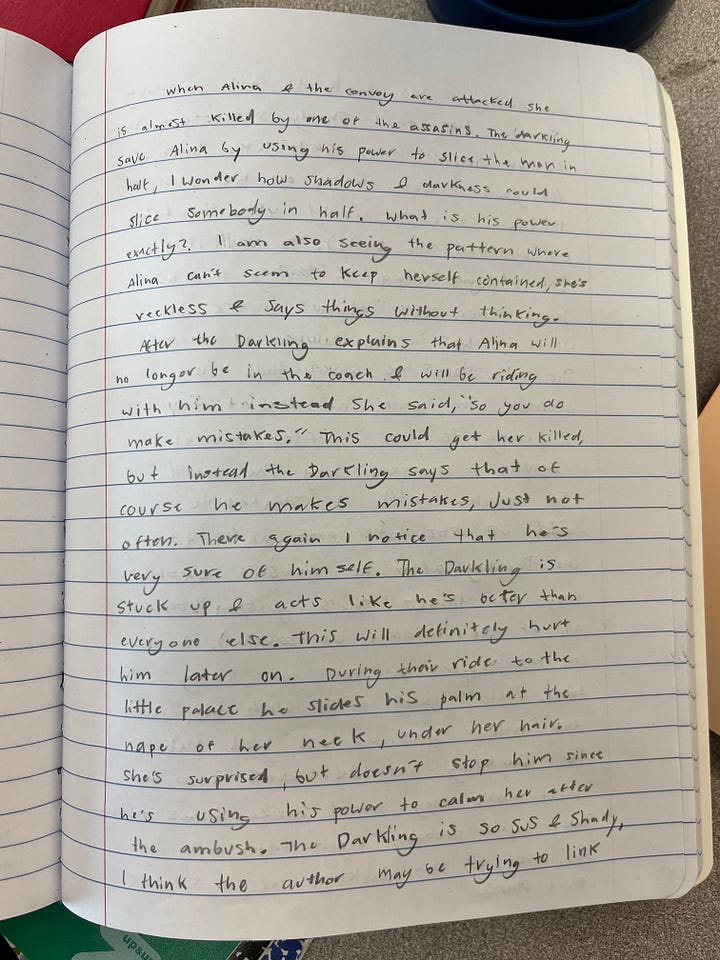 when Alina & the convoy are attacked she
is almost killed by one of the assasins. The darkling
save Alina by using his power to slice the man in
half, I wonder how shadows & darkness could
slice somebody in half. What is his power
exactly? I am also seeing the pattern where
Alina can't seem to keep herself contained, she's
reckless & says things without thinking.
After the Darkling explains that Alina will
no longer be in the coach & will be riding
with him instead she said, "so you do
make mistakes." This could get her killed,
but instead the Darkling says that of
course he makes mistakes, Just not
often. There again I notice that he's
very sure of himself. The Darkling is
stuck up & acts like he's better than
everyone else. This will definitely hurt
him later on. During their ride to the
little palace he slides his palm at the
nape of her neck, under her hair.
she's surprised, but doesn't stop him since
he's using his power to calm her after
the ambush. The Darkling is so sus & shady,
I think the author may be trying to link